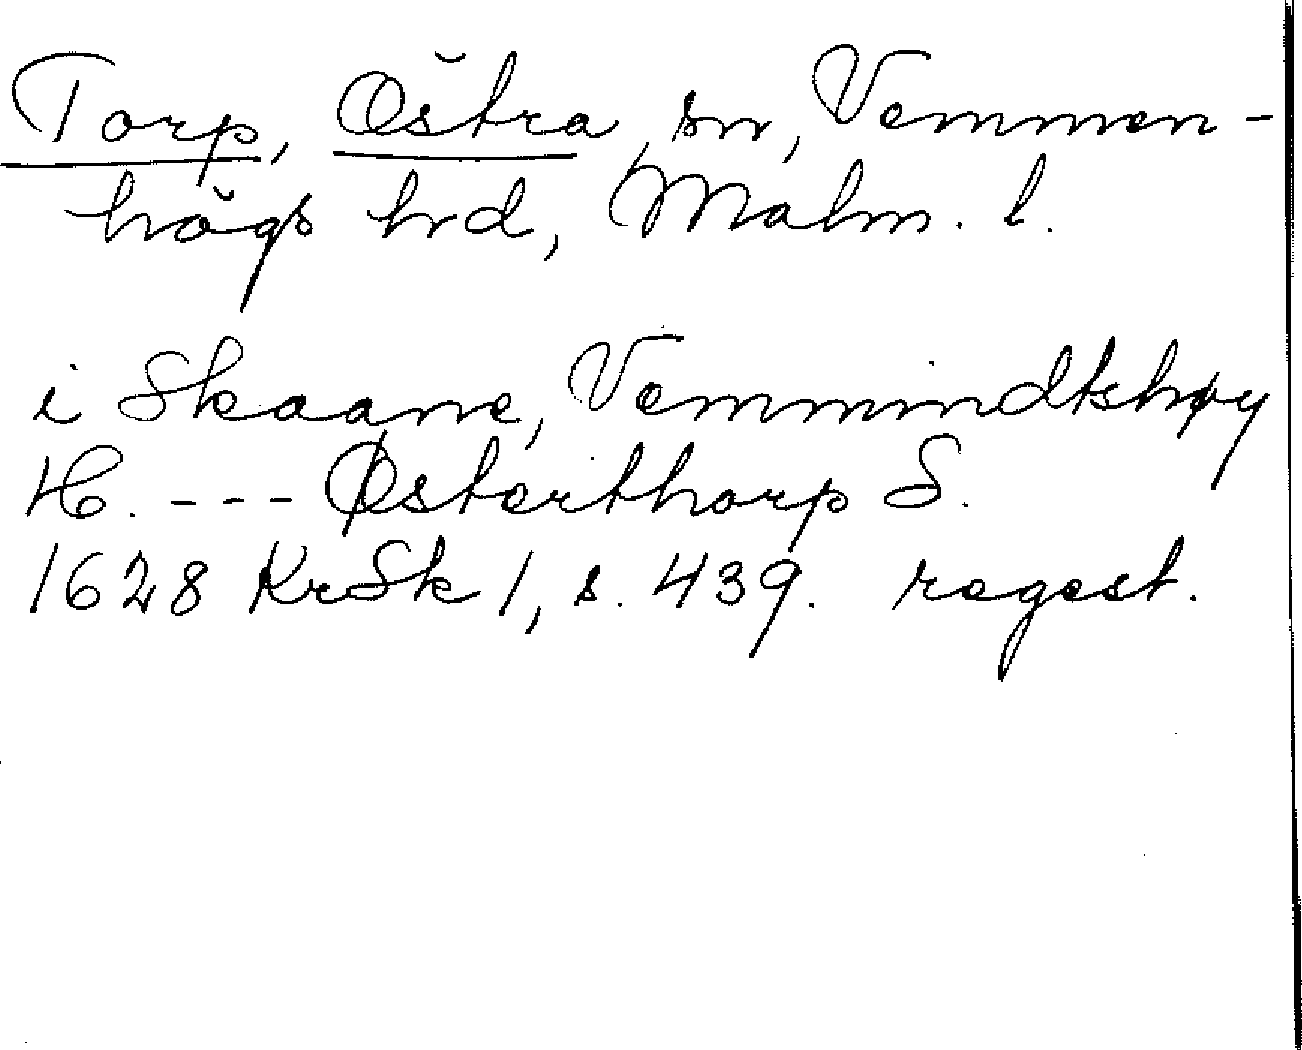 Torp, Östra, sn, Vemmen-
högs hrd, Malm. l.
i Skaane, Vemmindtshøy
H. --- Østerthorp S.
1628 KrSk 1, s. 439. regest.